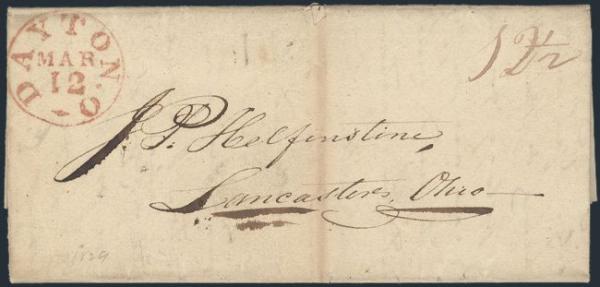 DAYTON. O
MAR
12
J. P. Helfinstine
Lancaster, Ohio